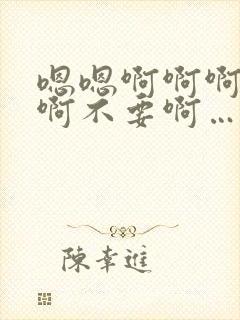 嗯嗯啊啊啊
啊不要啊…
陈幸进